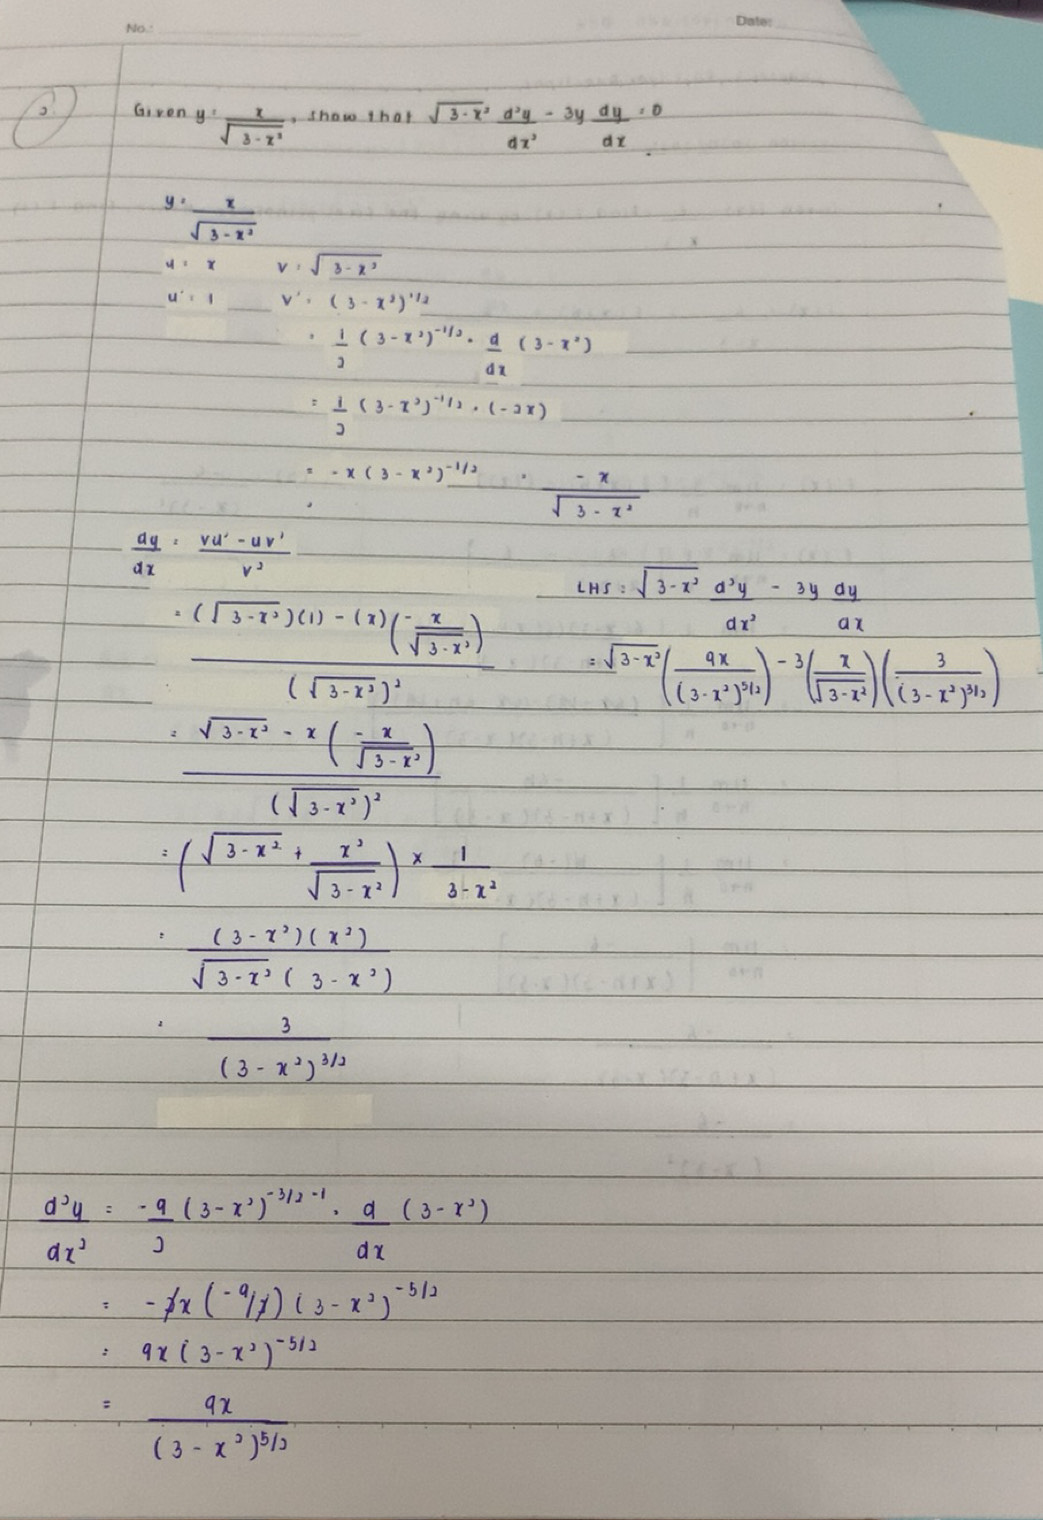 No.:
Date:
2. Given y = x/√(3-x²), show that √(3-x²) d²y/dx² - 3y dy/dx = 0
y = x/√(3-x²)
u = x v = √(3-x²)
u' = 1 v' = (3-x²)^1/2
= 1/2 (3-x²)^-1/2 · d/dx (3-x²)
= 1/2 (3-x²)^-1/2 · (-2x)
= -x(3-x²)^-1/2 = -x/√(3-x²)
dy/dx = (vu' - uv')/v²
= ((√(3-x²))(1) - (x)(-x/√(3-x²)))/(√(3-x²))²
= (√(3-x²) - x(-x/√(3-x²)))/(√(3-x²))²
= (√(3-x²) + x²/√(3-x²)) × 1/(3-x²)
= (3-x²)(x²)/(√(3-x²)(3-x²))
= 3/(3-x²)^3/2
d²y/dx² = -9/2 (3-x²)^(-3/2 -1) · d/dx (3-x²)
= -2x(-9/2)(3-x²)^-5/2
= 9x(3-x²)^-5/2
= 9x/(3-x²)^5/2
LHS: √(3-x²) d²y/dx² - 3y dy/dx
= √(3-x²)(9x/(3-x²)^5/2) - 3(x/√(3-x²))(3/(3-x²)^3/2)